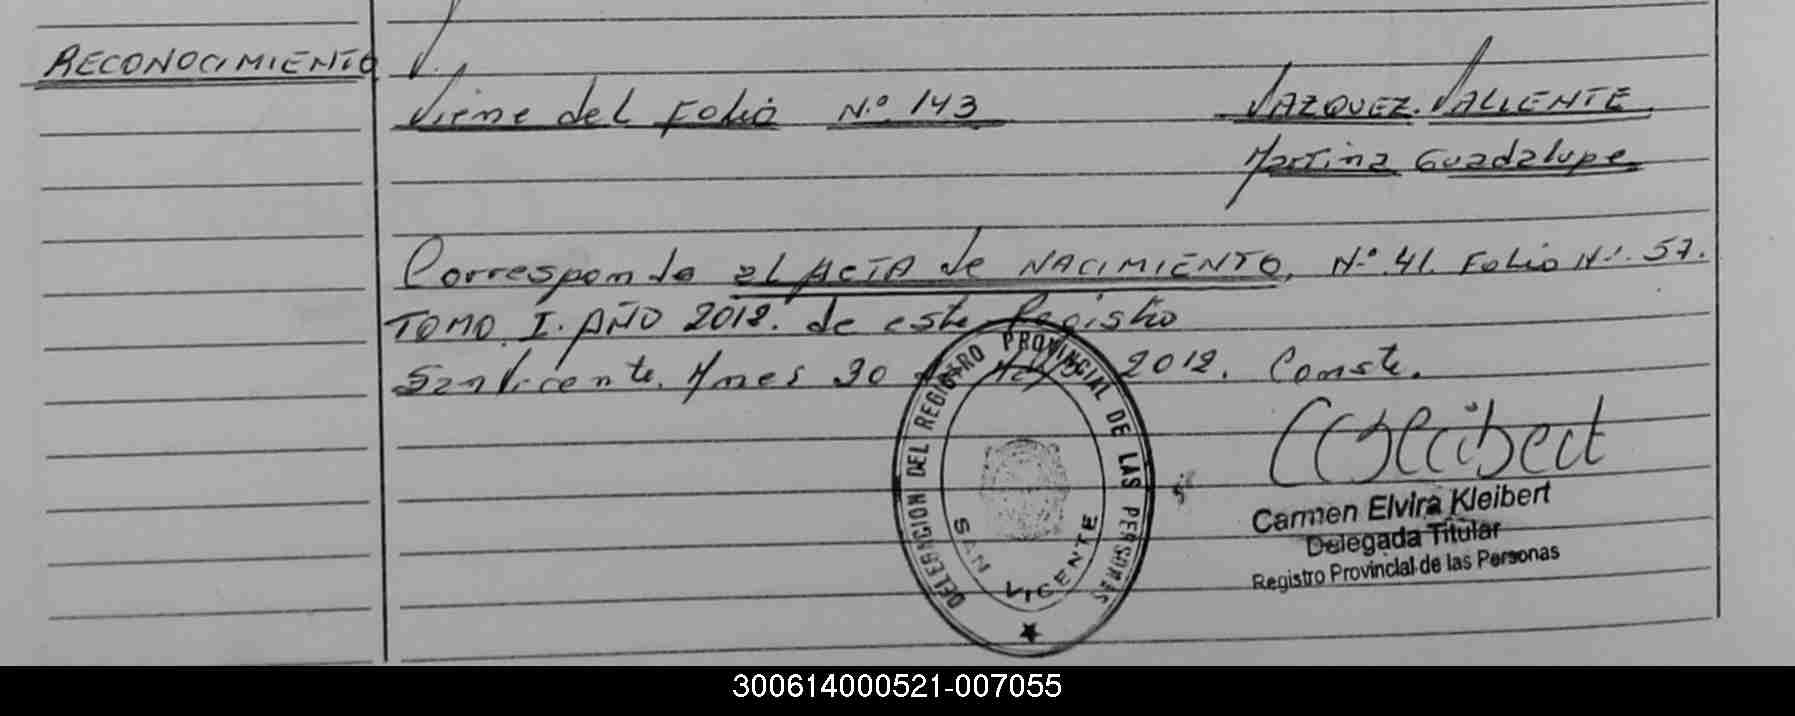 RECONOCIMIENTO
Viene del Folio N.º 143
VAZQUEZ. VALIENTE
Martina Guadalupe
Corresponde al ACTA de NACIMIENTO, N.º 41. Folio N.º 57.
TOMO I. AÑO 2012. de este Registro
San Vicente, Mnes 30 de 2012. Conste.
DELEGACION DEL REGISTRO PROVINCIAL DE LAS PERSONAS
SAN VICENTE
Carmen Elvira Kleibert
Delegada Titular
Registro Provincial de las Personas
300614000521-007055